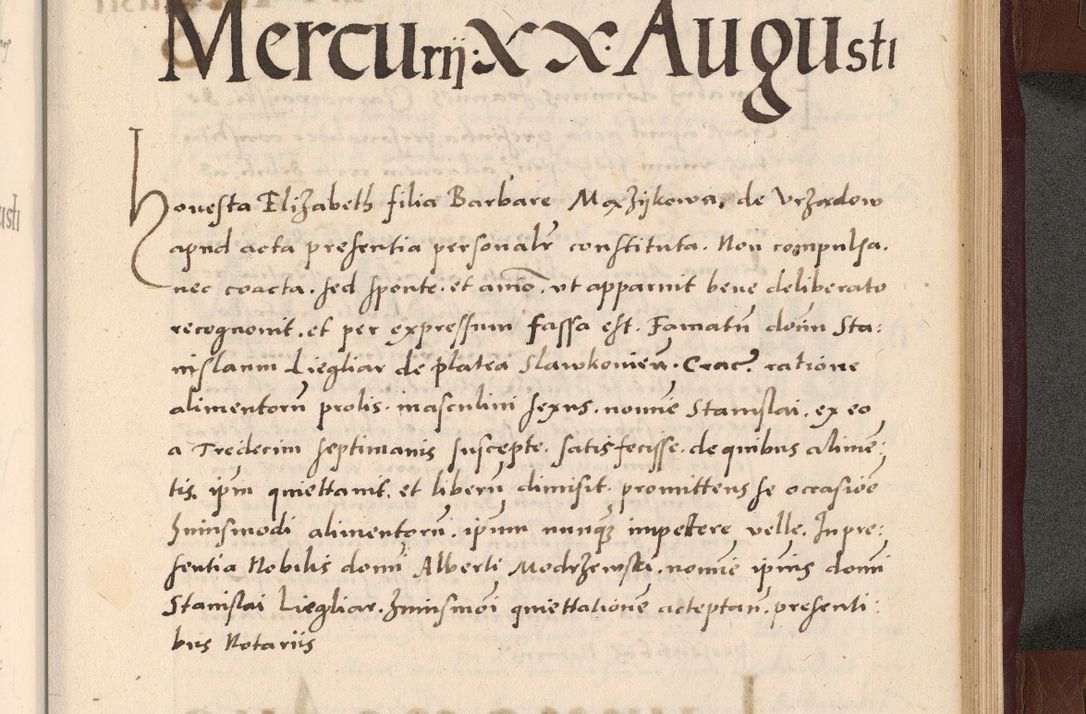 Mercurij · XX · Augusti
honesta Elizabeth filia Barbare Maxzijkowa, de Vrzadow
apud acta presentia personalr constituta. Non compulsa.
nec coacta. sed sponte. et aīo. vt apparuit bene deliberato
recognouit. et per expressum fassa est. Famatū domi Sta:
nislaum Liegliar de platea Slawkovien̄. Crac. ratione
alimentorū prolis. masculini sexus. nomie Stanislai. ex eo
a Tredecim septimanis suscepte. satisfecisse. de quibus alime:
tis, ipm quiettauit. et liberū dimisit. promittens se occasioē
huiusmodi alimentorū. ipsum nunqz impetere velle. In pre:
sentia Nobilis domi Alberti Modrzewski. nomie ipius domi
Stanislai Liegliar. huiusmoi quiettationē acceptan̄. presenti:
bus Notariis